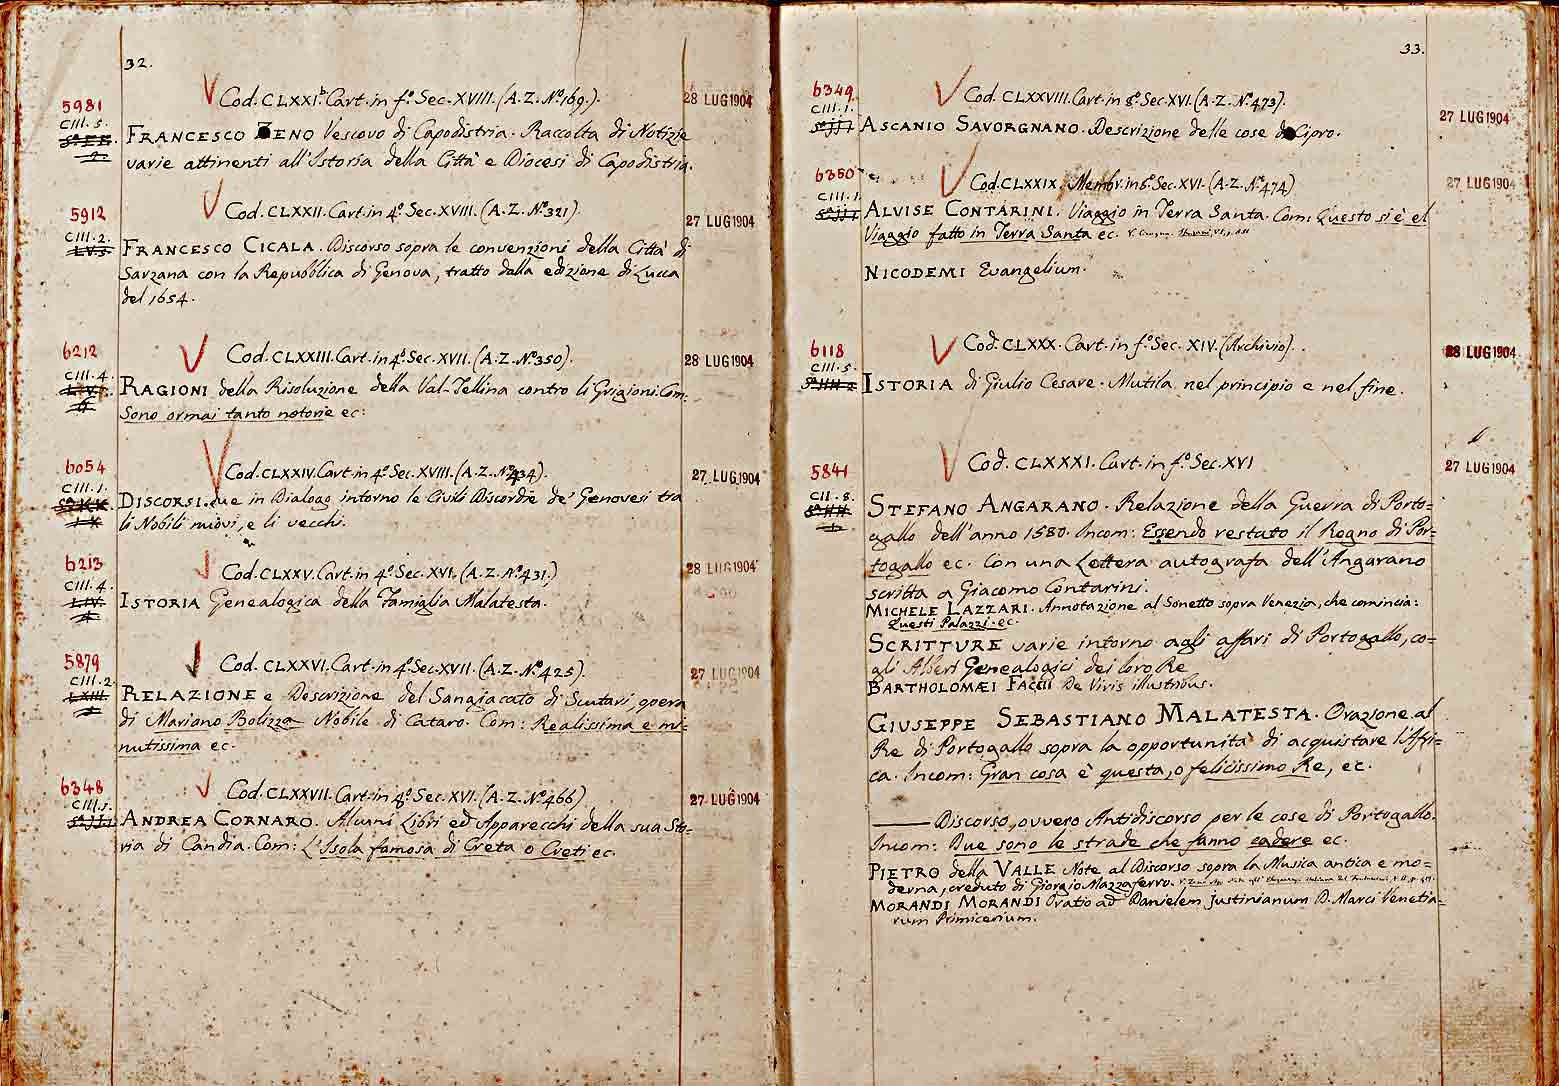 32.
5981
Cod. CLXXI.b Cart. in fo. Sec. XVIII. (A. Z. No. 169.).
28 LUG 1904
CIII. 5.
FRANCESCO ZENO Vescovo di Capodistria. Raccolta di Notizie
varie attinenti all'Istoria della Città e Diocesi di Capodistria.
5912
Cod. CLXXII. Cart. in 4o. Sec. XVIII. (A. Z. No. 321).
27 LUG 1904
CIII. 2.
FRANCESCO CICALA. Discorso sopra le convenzioni della Città di
Sarzana con la Repubblica di Genova, tratto dalla edizione di Lucca
del 1654.
6212
Cod. CLXXIII. Cart. in 4o. Sec. XVII. (A. Z. No. 350).
28 LUG 1904
CIII. 4.
RAGIONI della Risoluzione della Val-Tellina contro li Grigioni. Com:
Sono ormai tanto notorie ec:
6054
Cod. CLXXIV. Cart. in 4o. Sec. XVIII. (A. Z. No. 434).
27 LUG 1904
CIII. 1.
DISCORSI due in Dialogo intorno le Civili Discordie de' Genovesi tra
li Nobili nuovi, e li vecchi.
6213
Cod. CLXXV. Cart. in 4o. Sec. XVI. (A. Z. No. 431.)
28 LUG 1904
CIII. 4.
ISTORIA Genealogica della Famiglia Malatesta.
5879
Cod. CLXXVI. Cart. in 4o. Sec. XVII. (A. Z. No. 425).
27 LUG 1904
CIII. 2.
RELAZIONE e Descrizione del Sangiacato di Scutari, opera
di Mariano Bolizza Nobile di Cataro. Com: Realissima e mi=
nutissima ec.
6348
Cod. CLXXVII. Cart. in 8o. Sec. XVI. (A. Z. No. 466)
27 LUG 1904
CIII. 1.
ANDREA CORNARO. Alcuni Libri ed Apparecchi della sua Sto=
ria di Candia. Com: L'Isola famosa di Creta o Creti ec.
33.
6349
Cod. CLXXVIII. Cart. in 8o. Sec. XVI. (A. Z. No. 473).
27 LUG 1904
CIII. 1.
ASCANIO SAVORGNANO. Descrizione delle cose di Cipro.
6350
Cod. CLXXIX. Membr. in 8o. Sec. XVI. (A. Z. No. 474)
27 LUG 1904
CIII. 1.
ALVISE CONTARINI. Viaggio in Terra Santa. Com: Questo si è el
Viaggio fatto in Terra Santa ec.
NICODEMI Evangelium.
6118
Cod. CLXXX. Cart. in fo. Sec. XIV. (Archivio).
28 LUG 1904
CIII. 5.
ISTORIA di Giulio Cesare. Mutila nel principio e nel fine.
5841
Cod. CLXXXI. Cart. in fo. Sec. XVI
27 LUG 1904
CII. 8.
STEFANO ANGARANO. Relazione della Guerra di Porto=
gallo dell'anno 1580. Incom: Essendo restato il Regno di Por=
togallo ec. Con una Lettera autografa dell'Angarano
scritta a Giacomo Contarini.
MICHELE LAZZARI. Annotazione al Sonetto sopra Venezia, che comincia:
Questi Palazzi. ec.
SCRITTURE varie intorno agli affari di Portogallo, co=
gli Alberi Genealogici dei loro Re
BARTHOLOMÆI FACCII De Viris illustribus.
GIUSEPPE SEBASTIANO MALATESTA. Orazione al
Re di Portogallo sopra la opportunità di acquistare l'Afri=
ca. Incom: Gran cosa è questa, o felicissimo Re, ec.
——— Discorso, ovvero Antidiscorso per le cose di Portogallo.
Incom: Due sono le strade che fanno cadere ec.
PIETRO della VALLE Note al Discorso sopra la Musica antica e mo=
derna, creduto di Giorgio Mazzaferro.
MORANDI MORANDI Oratio ad Danielem Justinianum D. Marci Venetia=
rum Primicerium.